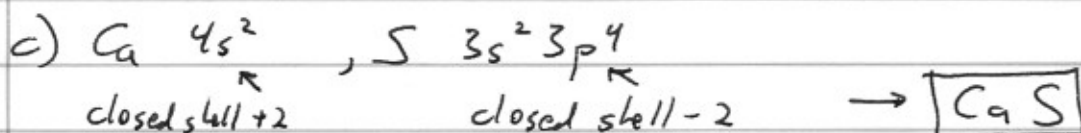 c) Ca 4s² , S 3s² 3p⁴
↖ ↖
closed shell +2 closed shell - 2 → CaS